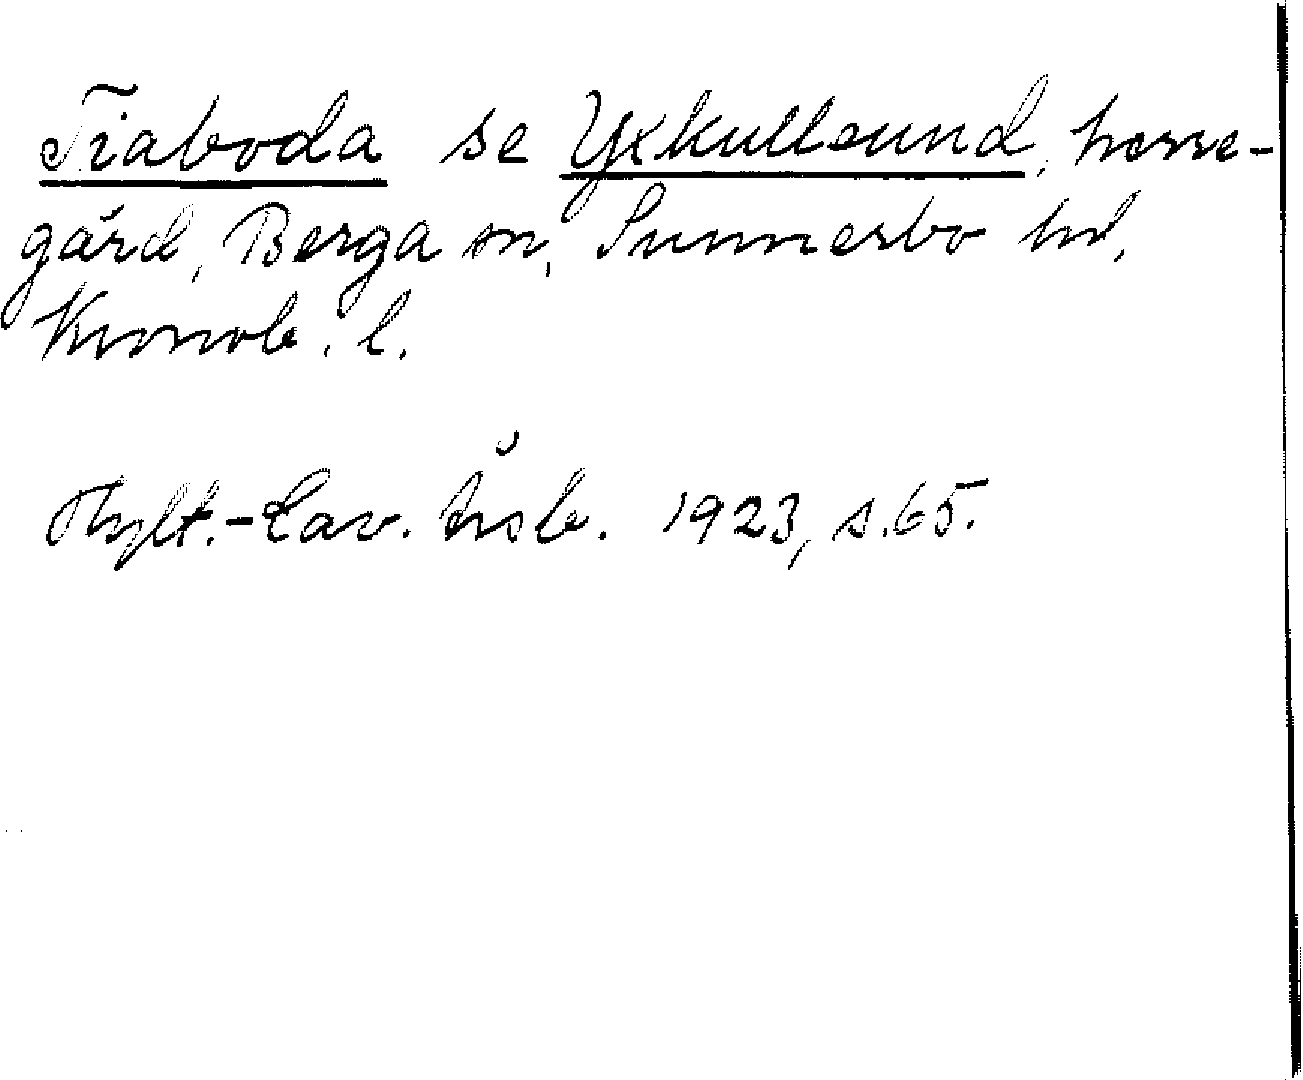 Tiaboda se Yxkullsund, herre-
gård, Berga sn, Sunnerbo hd,
Kronob. l.
Hylt.-Cav. Årsb. 1923, s.65.